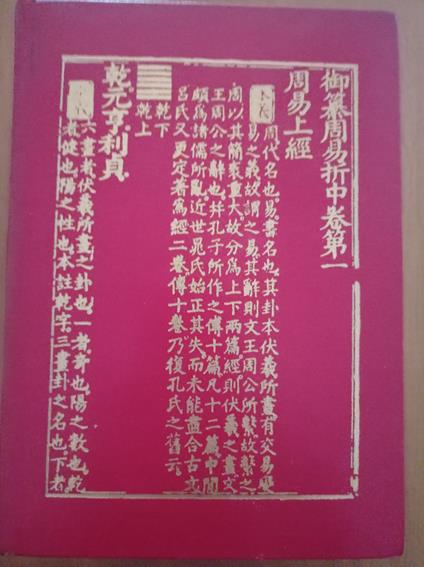 御纂周易折中卷第一
周易上經
周代名也易書名也其卦本伏羲所畫有交易變
易之義故謂之易其辭則文王周公所繫故繫之
周以其簡袠重大故分爲上下兩篇經則伏羲之畫文
王周公之辭也并孔子所作之傳十篇凡十二篇中間
頗爲諸儒所亂近世晁氏始正其失而未能盡合古文
呂氏又更定著爲經二卷傳十卷乃復孔氏之舊云
乾下
乾上
乾元亨利貞
六畫者伏羲所畫之卦也一者奇也陽之數也乾
者健也陽之性也本註乾字三畫卦之名也下者